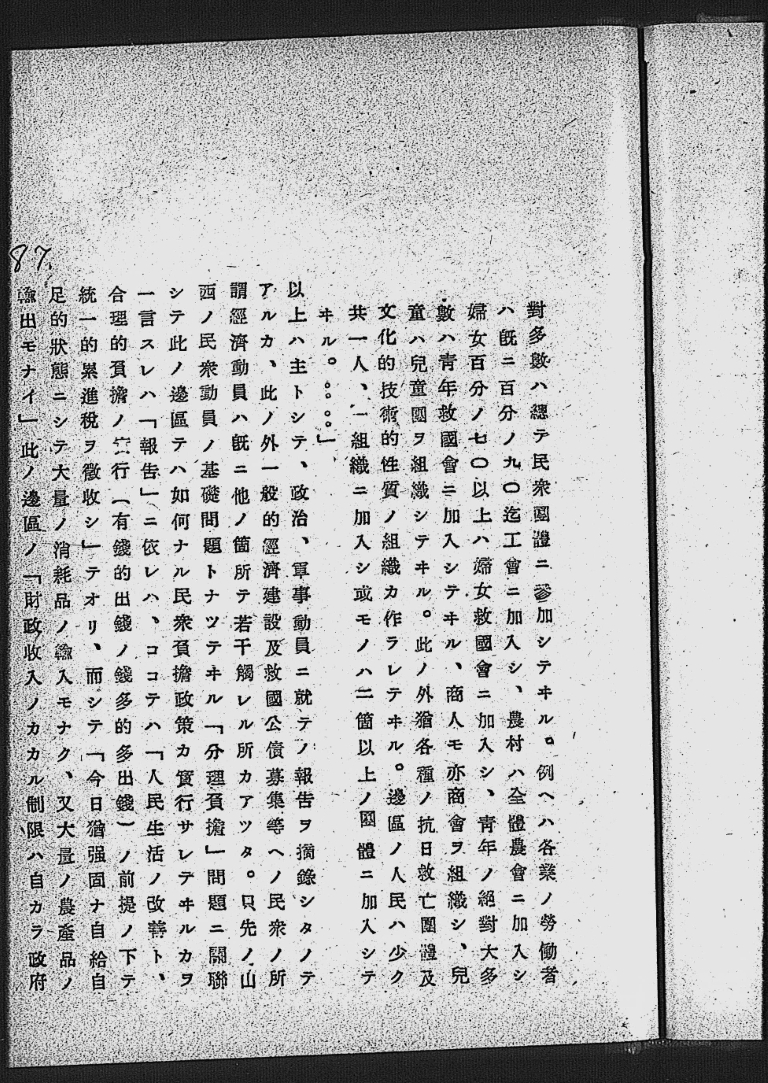 對多數ハ總テ民衆團體ニ參加シテヰル。例ヘハ各業ノ勞働者
ハ既ニ百分ノ九〇迄工會ニ加入シ、農村ハ全體農會ニ加入シ
婦女百分ノ七〇以上ハ婦女救國會ニ加入シ、青年ノ絕對大多
數ハ青年救國會ニ加入シテヰル、商人モ亦商會ヲ組織シ、兒
童ハ兒童團ヲ組織シテヰル。此ノ外猶各種ノ抗日救亡團體及
文化的技術的性質ノ組織カ作ラレテヰル。邊區ノ人民ハ少ク
共一人、一組織ニ加入シ或モノハ二箇以上ノ團體ニ加入シテ
ヰル。。。。」
以上ハ主トシテ、政治、軍事動員ニ就テノ報告ヲ摘錄シタノテ
アルカ、此ノ外一般的經濟建設及救國公債募集等ヘノ民衆ノ所
謂經濟動員ハ既ニ他ノ箇所テ若干觸レル所カアツタ。只先ノ山
西ノ民衆動員ノ基礎問題トナツテヰル「分理負擔」問題ニ關聯
シテ此ノ邊區テハ如何ナル民衆負擔政策カ實行サレテヰルカヲ
一言スレハ「報告」ニ依レハ、ココテハ「人民生活ノ改善ト、
合理的負擔ノ實行(有錢的出錢ノ錢多的多出錢)ノ前提ノ下テ
統一的累進稅ヲ徵收シ」テオリ、而シテ「今日猶强固ナ自給自
足的狀態ニシテ大量ノ消耗品ノ輸入モナク、又大量ノ農產品ノ
輸出モナイ」此ノ邊區ノ「財政收入ノカカル制限ハ自カラ政府
87